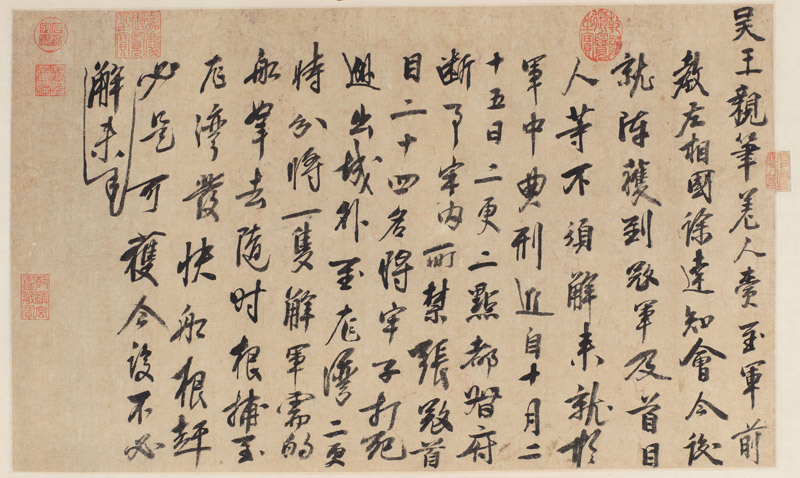 吳王親筆差人賫至軍前
教左相國徐達知會今後
就陣獲到寇軍及首目
人等不須解來就於
軍中典刑近自十月二
十五日二更二點都督府
斷事牢內所禁張寇首
目二十四名將牢子打死
越出城外至龍灣二更
時分將一隻解軍需的
船拏去隨時根捕至
龍灣發快船根趕
必是可獲今後不必
解來